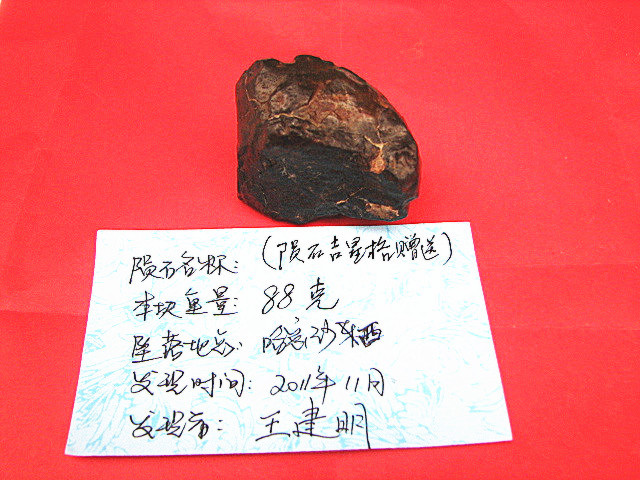 陨石名称：（陨石吉星格赠送）
本块重量：88克
坠落地点：哈密沙
发现时间：2011年11月
发现者：王建明